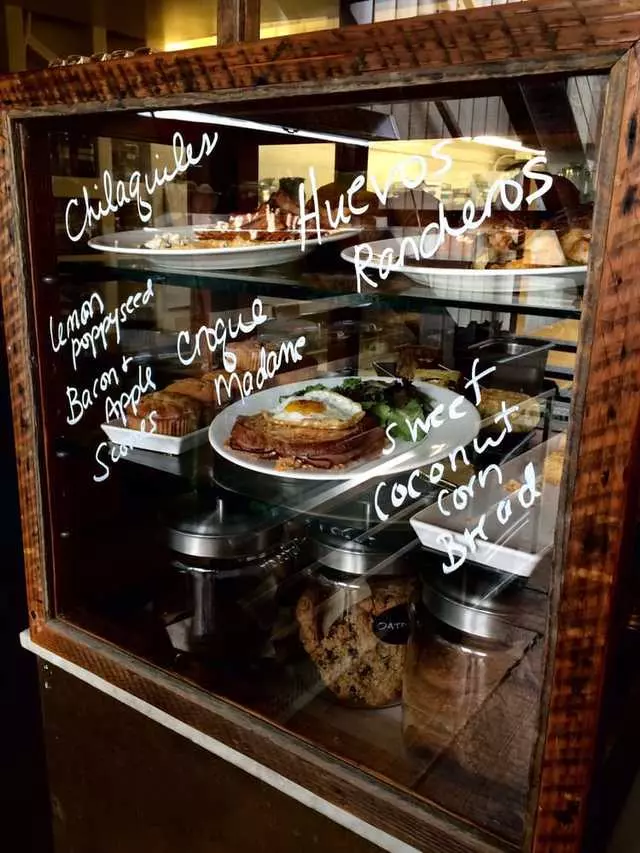 Chilaquiles
Huevos
Rancheros
Lemon
poppyseed
Bacon +
Apple
Scones
Croque
Madame
sweet
coconut
corn
Bread
OATM